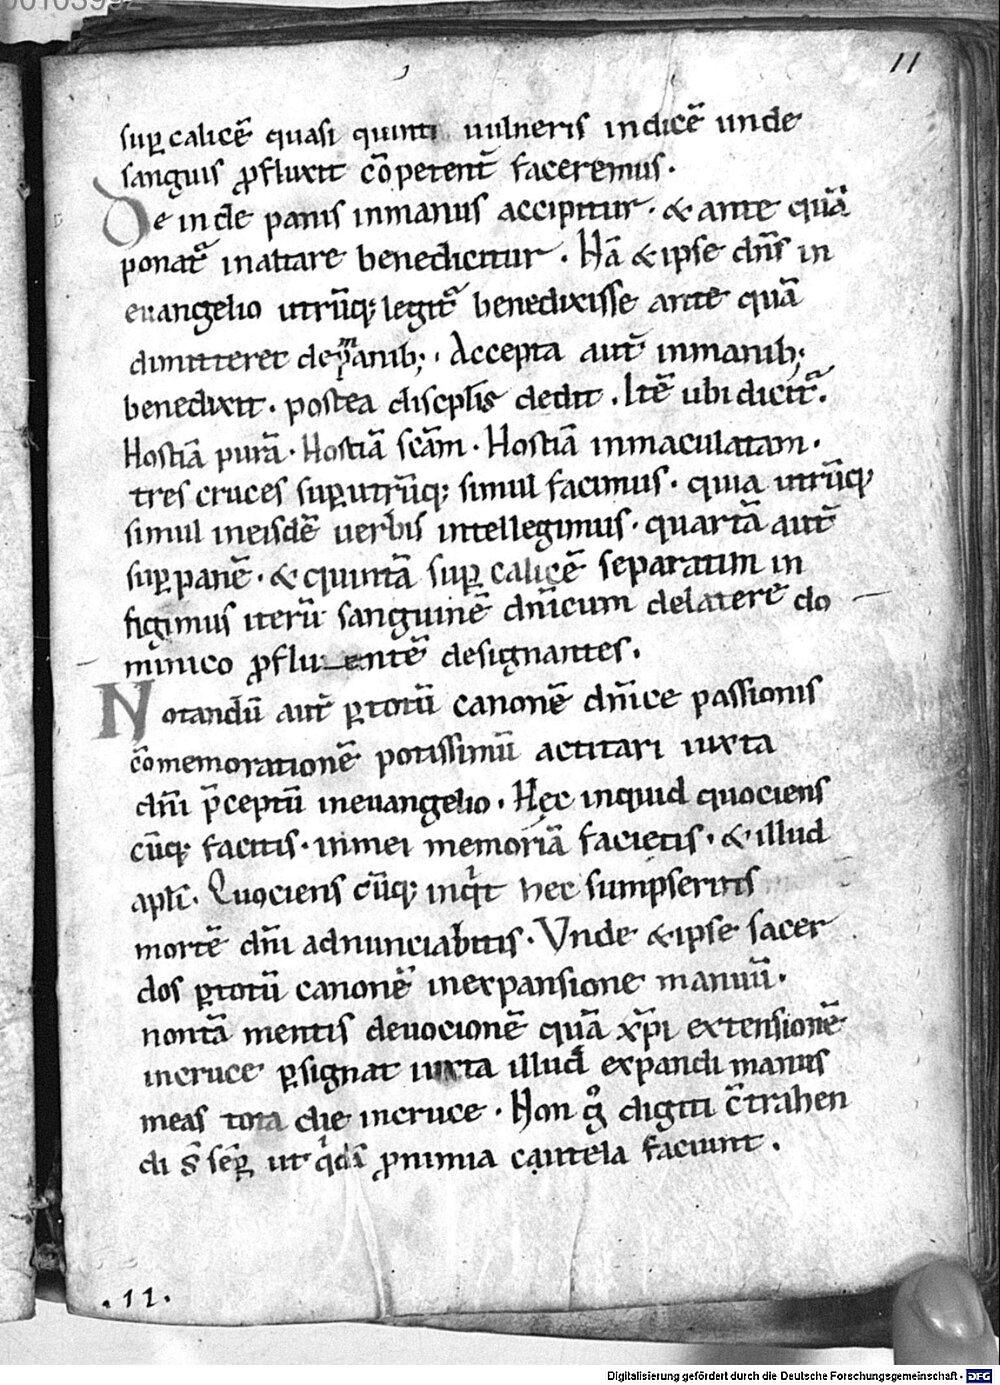 00103992
11
suꝑ calicē quasi quinti uulneris indicē unde
sanguis ꝓfluxit cōpetent᷑ faceremus.
Deinde panis inmanus accipitur. & ante quā
ponat᷑ inaltare benedicitur. Nā & ipse dn̄s in
euangelio utrūq; legit᷑ benedixisse ante quā
dimitteret de manib;. Accepta aut̄ inmanib;
benedixit. postea discipl̄is dedit. Itē ubi dicit᷑.
Hostiā purā. Hostiā sc̄am. Hostiā inmaculatam.
tres cruces suꝑ utrūq; simul facimus. quia utrūq;
simul ineisdē uerbis intellegimus. quartā aut̄
suꝑ panē. & quintā suꝑ calicē separatim in
figimus iterū sanguinē dn̄icum delatere do
minico ꝓfluentē designantes.
Notandū aut̄ ꝑ totū canonē dn̄ice passionis
cōmemorationē potissimū actitari iuxta
dn̄i p̄ceptū ineuangelio. Hęc inquid quociens
cūq; facitis. inmei memoriā facietis. & illud
apl̄i. Quociens cūq; inqͥt hec sumpseritis
mortē dn̄i adnunciabitis. Vnde & ipse sacer
dos ꝑ totū canonē inexpansione manuū.
nontā mentis deuocionē quā xp̄i extensionē
incruce ꝑsignat iuxta illud expandi manus
meas tota die incruce. Non gͦ digiti c̄trahen
di s̄ sēꝑ ut qͥdā ꝓ nimia cautela faciunt.
.11.
Digitalisierung gefördert durch die Deutsche Forschungsgemeinschaft - DFG